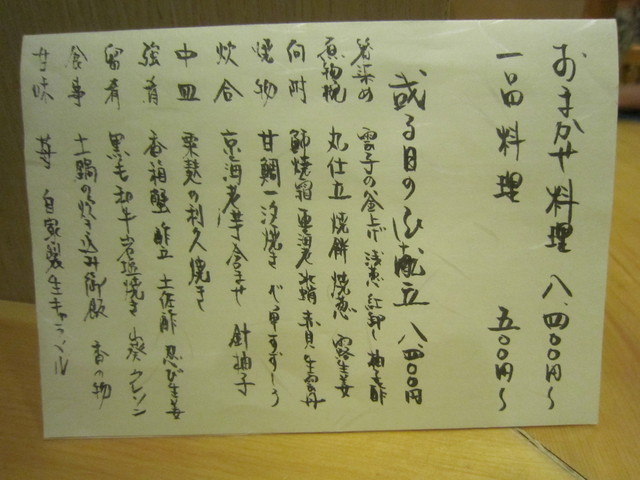 おまかせ料理 八、四〇〇円〜
一品料理 五〇〇円〜
或る日の献立 八、四〇〇円
箸染め 雲子の釜上げ 浅葱 紅卸し 柚子酢
煮物椀 丸仕立 焼餅 焼葱 露生姜
向附 鰤焼霜 車海老 水蛸 赤貝 生雲丹
焼物 甘鯛一汐焼き
炊合 京海老芋含ませ 針柚子
中皿 粟麩の利久焼き
強肴 香箱蟹 酢立 土佐酢 忍び生姜
留肴 黒毛和牛岩塩焼き 山葵 クレソン
食事 土鍋の炊き込み御飯 香の物
甘味 苺 自家製生キャラメル